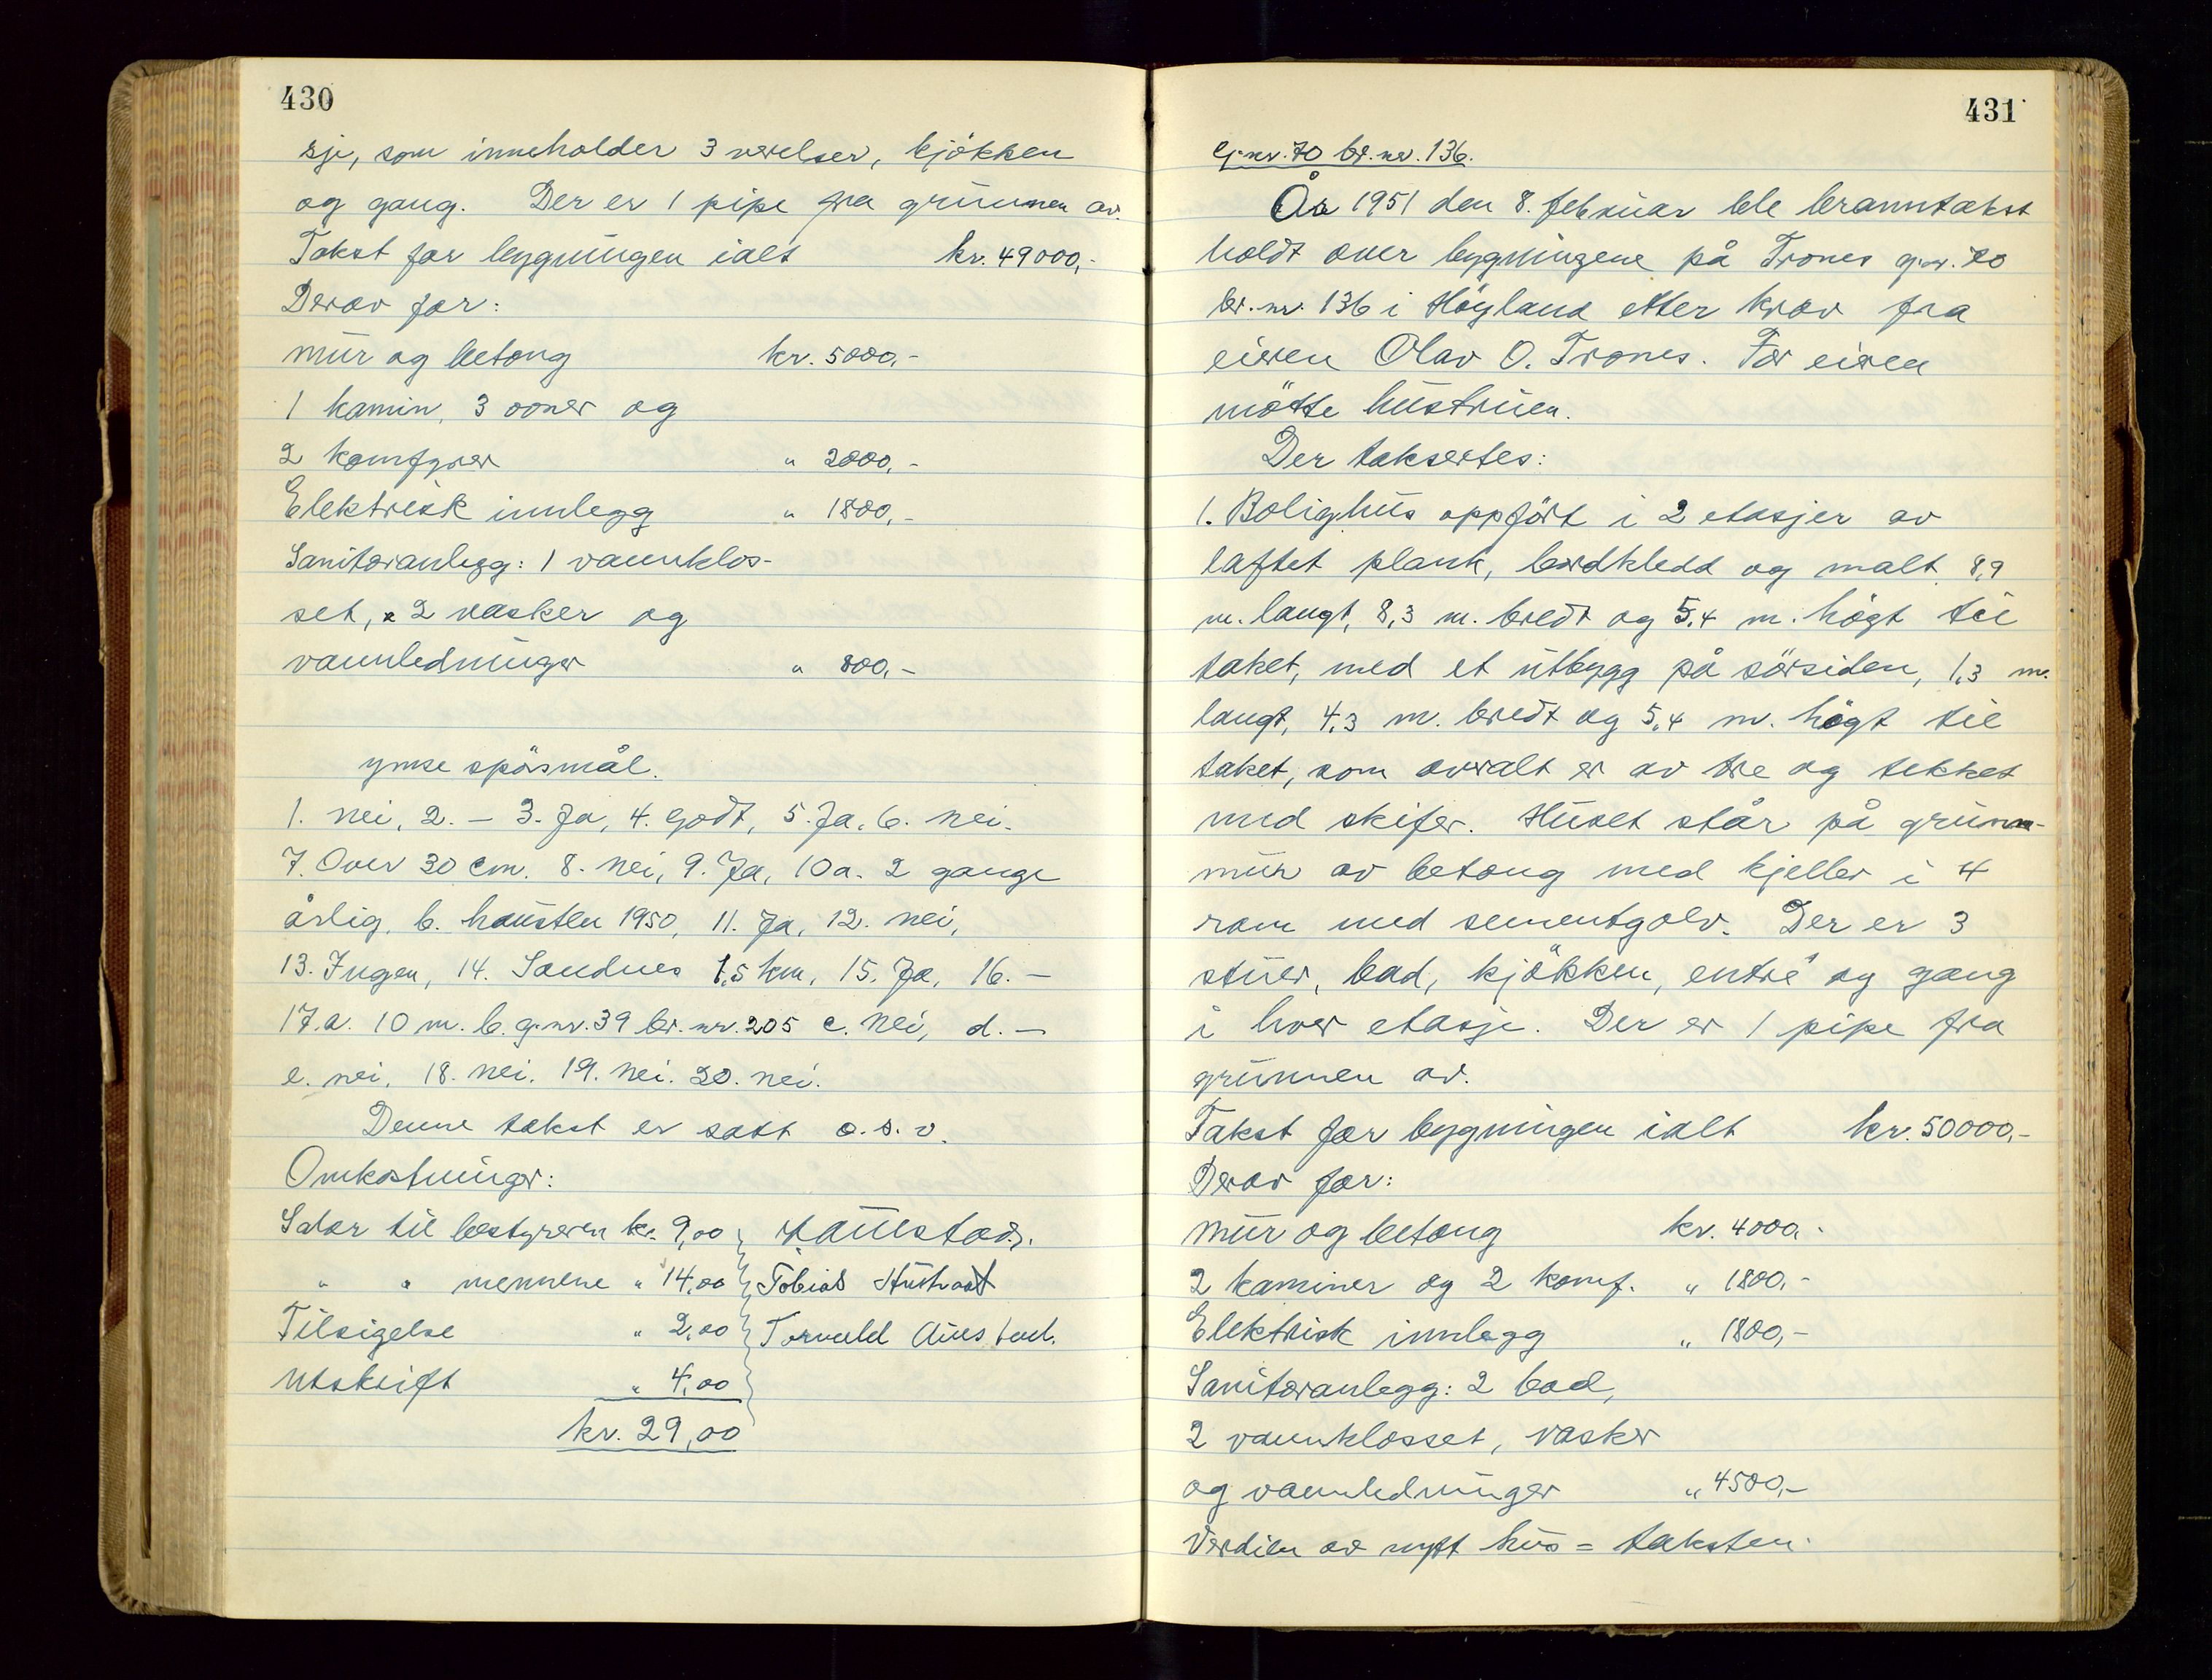 430
sje, som inneholder 3 værelser, kjökken
og gang. Der er 1 pipe fra grunnen av.
Takst for bygningen ialt kr. 49000,-
Derav for:
mur og betong kr. 5000,-
1 kamin, 3 ovner og
2 komfyrer " 2000,-
Elektrisk innlegg " 1800,-
Sanitæranlegg: 1 vannklos-
set, 2 vasker og
vannledninger " 800,-
ymse spörsmål.
1. nei, 2. – 3. Ja, 4. godt, 5. Ja. 6. nei.
7. Over 30 cm. 8. nei, 9. Ja, 10a. 2 gange
årlig, b. hausten 1950, 11. Ja, 12. nei,
13. Ingen, 14. Sandnes 1,5 km, 15. Ja, 16. –
17.a. 10 m. b. g.nr. 39 br.nr. 205 c. nei, d. –
e. nei, 18. nei. 19. nei. 20. nei.
Denne takst er satt o.s.v.
Omkostninger:
Salær til bestyreren kr. 9,00
" " mennene " 14,00 Tobias
Tilsigelse " 2,00 Torvald Austad.
Utskrift " 4,00
kr. 29,00
431
G.nr. 70 br.nr. 136.
År 1951 den 8. februar ble branntakst
holdt over bygningene på Trones g.nr. 70
br.nr. 136 i Höyland etter krav fra
eieren Olav O. Trones. For eieren
mötte hustruen.
Der taksertes:
1. Bolighus oppfört i 2 etasjer av
laftet plank, bordkledd og malt 8,9
m. langt, 8,3 m. bredt og 5,4 m. högt til
taket, med et utbygg på sörsiden, 1,3 m.
langt, 4,3 m. bredt og 5,4 m. högt til
taket, som overalt er av tre og tekket
med skifer. Huset står på grunn-
mur av betong med kjeller i 4
rom med sementgolv. Der er 3
stuer, bad, kjökken, entré og gang
i hver etasje. Der er 1 pipe fra
grunnen av.
Takst for bygningen ialt kr. 50000,-
Derav for:
mur og betong kr. 4000,-
2 kaminer og 2 komf. " 1800,-
Elektrisk innlegg " 1800,-
Sanitæranlegg: 2 bad,
2 vannklosset, vasker
og vannledninger " 4500,-
Verdien av nytt hus = taksten.